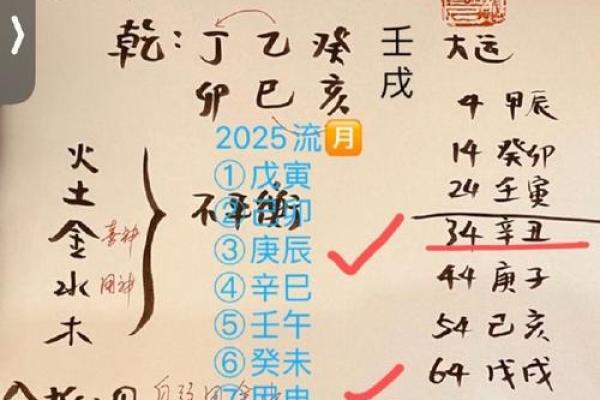 乾：丁 乙 癸 壬 大运
卯 巳 亥 戌
4 甲辰
14 癸卯
24 壬寅
34 辛丑
44 庚子
54 己亥
64 戊戌
火
土
金 喜神
水 用神
木
不平衡
2025流月
①戊寅
②己卯
③庚辰
④辛巳
⑤壬午
⑥癸未
⑦甲申